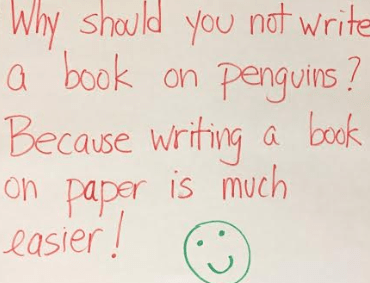 Why should you not write
a book on penguins?
Because writing a book
on paper is much
easier!